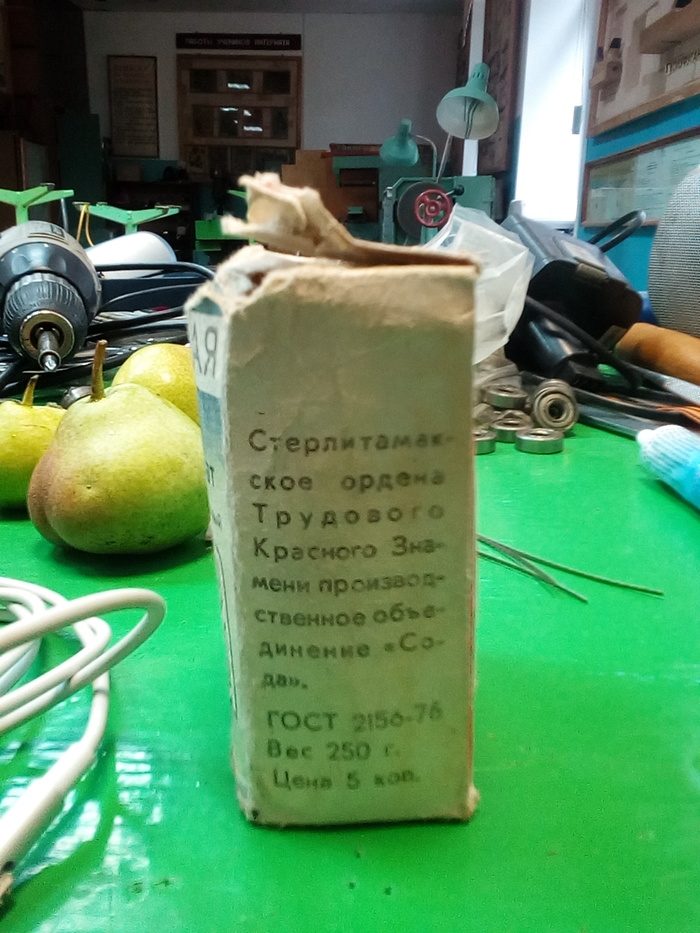 РАБОТЫ УЧЕНИКОВ ИНТЕРНАТА
АЯ
Стерлитамак-
ское ордена
Трудового
Красного Зна-
мени производ-
ственное объе-
динение «Со-
да».
ГОСТ 2156-76
Вес 250 г.
Цена 5 коп.